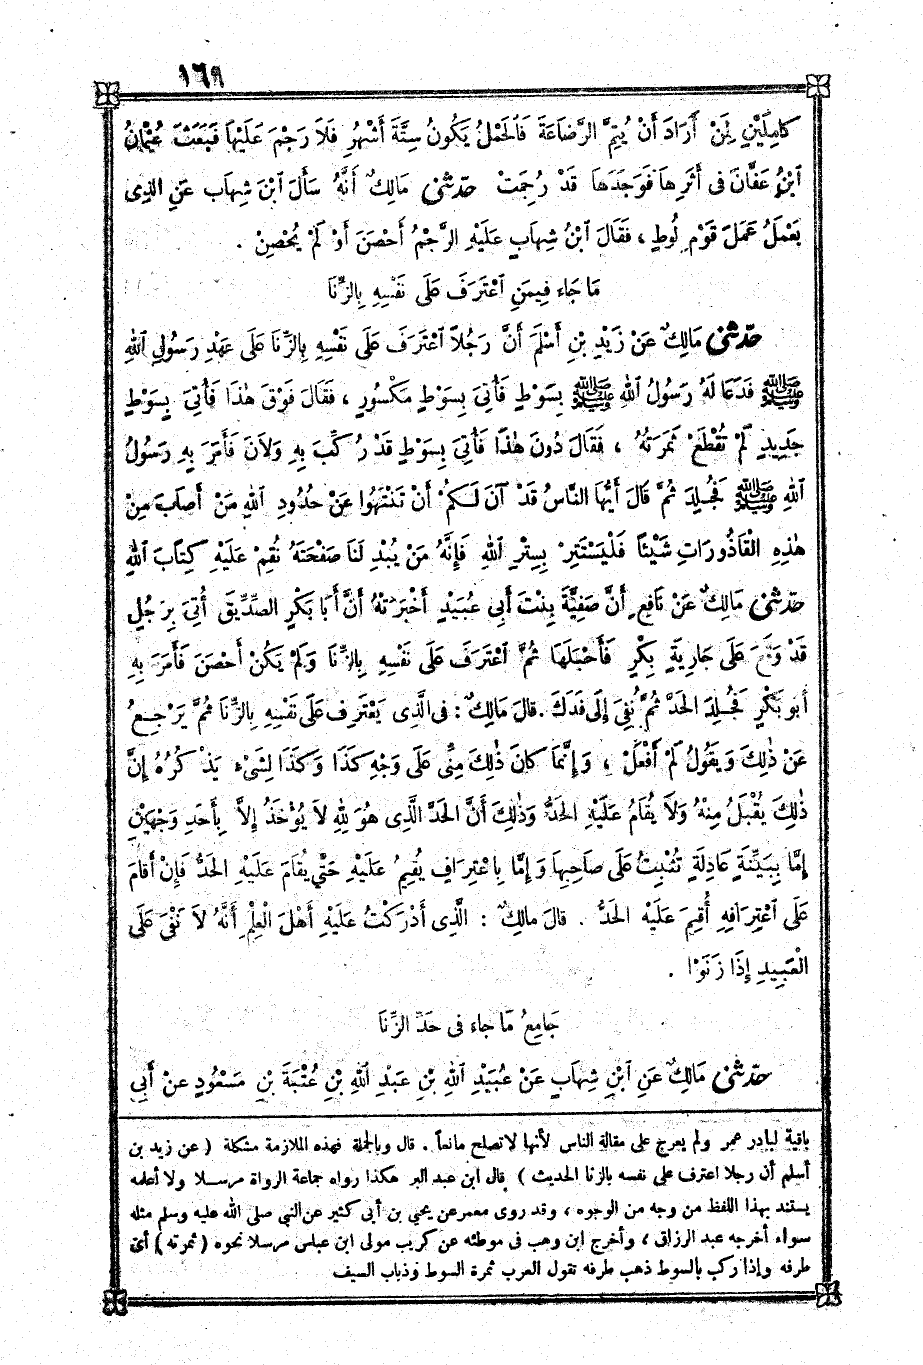 ١٦٩
كَامِلَيْنِ لِمَنْ أَرَادَ أَنْ يُتِمَّ الرَّضَاعَةَ فَالْحَمْلُ يَكُونُ سِتَّةَ أَشْهُرٍ فَلَا رَجْمَ عَلَيْهَا فَبَعَثَ عُثْمَانُ
ابْنُ عَفَّانَ فِى أَثَرِهَا فَوَجَدَهَا قَدْ رُجِمَتْ حَدّثَنِى مَالِكٌ أَنَّهُ سَأَلَ ابْنَ شِهَابٍ عَنِ الَّذِى
يَعْمَلُ عَمَلَ قَوْمِ لُوطٍ ، فَقَالَ ابْنُ شِهَابٍ عَلَيْهِ الرَّجْمُ أَحْصَنَ أَوْ لَمْ يُحْصِنْ .
مَا جَاءَ فِيمَنِ اعْتَرَفَ عَلَى نَفْسِهِ بِالزِّنَا
حَدّثَنِى مَالِكٌ عَنْ زَيْدِ بْنِ أَسْلَمَ أَنَّ رَجُلاً اعْتَرَفَ عَلَى نَفْسِهِ بِالزِّنَا عَلَى عَهْدِ رَسُولِ اللهِ
ﷺ فَدَعَا لَهُ رَسُولُ اللهِ ﷺ بِسَوْطٍ فَأُتِىَ بِسَوْطٍ مَكْسُورٍ ، فَقَالَ فَوْقَ هٰذَا فَأُتِىَ بِسَوْطٍ
جَدِيدٍ لَمْ تُقْطَعْ ثَمَرَتُهُ ، فَقَالَ دُونَ هٰذَا فَأُتِىَ بِسَوْطٍ قَدْ رُكِّبَ بِهِ وَلَانَ فَأَمَرَ بِهِ رَسُولُ
اللهِ ﷺ فَجُلِدَ ثُمَّ قَالَ أَيُّهَا النَّاسُ قَدْ آنَ لَكُمْ أَنْ تَنْتَهُوا عَنْ حُدُودِ اللهِ مَنْ أَصَابَ مِنْ
هٰذِهِ الْقَاذُورَاتِ شَيْئًا فَلْيَسْتَتِرْ بِسِتْرِ اللهِ فَإِنَّهُ مَنْ يُبْدِ لَنَا صَفْحَتَهُ نُقِمْ عَلَيْهِ كِتَابَ اللهِ
حَدّثَنِى مَالِكٌ عَنْ نَافِعٍ أَنَّ صَفِيَّةَ بِنْتَ أَبِى عُبَيْدٍ أَخْبَرَتْهُ أَنَّ أَبَا بَكْرٍ الصِّدِّيقَ أُتِىَ بِرَجُلٍ
قَدْ وَقَعَ عَلَى جَارِيَةٍ بِكْرٍ فَأَحْبَلَهَا ثُمَّ اعْتَرَفَ عَلَى نَفْسِهِ بِالزِّنَا وَلَمْ يَكُنْ أَحْصَنَ فَأَمَرَ بِهِ
أَبُو بَكْرٍ فَجُلِدَ الحَدَّ ثُمَّ نُفِىَ إِلَى فَدَكَ . قالَ مَالِكٌ : فِى الَّذِى يَعْتَرِفُ عَلَى نَفْسِهِ بِالزِّنَا ثُمَّ يَرْجِعُ
عَنْ ذٰلِكَ وَيَقُولُ لَمْ أَفْعَلْ ، وَإِنَّمَا كَانَ ذٰلِكَ مِنِّى عَلَى وَجْهِ كَذَا وَكَذَا لِشَىْءٍ يَذْكُرُهُ إِنَّ
ذٰلِكَ يُقْبَلُ مِنْهُ وَلَا يُقَامُ عَلَيْهِ الحَدُّ وَذٰلِكَ أَنَّ الحَدَّ الَّذِى هُوَ لِلهِ لَا يُؤْخَذُ إِلاَّ بِأَحَدِ وَجْهَيْنِ
إِمَّا بِبَيِّنَةٍ عَادِلَةٍ تُثْبِتُ عَلَى صَاحِبِهَا وَإِمَّا بِاعْتِرَافٍ يُقِيمُ عَلَيْهِ حَتَّى يُقَامَ عَلَيْهِ الحَدُّ فَإِنْ أَقَامَ
عَلَى اعْتِرَافِهِ أُقِيمَ عَلَيْهِ الحَدُّ . قالَ مالِكٌ : الَّذِى أَدْرَكْتُ عَلَيْهِ أَهْلَ الْعِلْمِ أَنَّهُ لَا نَفْىَ عَلَى
الْعَبِيدِ إِذَا زَنَوْا .
جَامِعُ مَا جَاءَ فِى حَدِّ الزِّنَا
حَدّثَنِى مَالِكٌ عَنِ ابْنِ شِهَابٍ عَنْ عُبَيْدِ اللهِ بْنِ عَبْدِ اللهِ بْنِ عُتْبَةَ بْنِ مَسْعُودٍ عَنْ أَبِى
باقية لبادر عمر ولم يعرج على مقالة الناس لأنها لا تصلح مانعا . قال وبالجملة فهذه الملازمة مشكلة ( عن زيد بن
أسلم أن رجلا اعترف على نفسه بالزنا الحديث ) قال ابن عبد البر هكذا رواه جماعة الرواة مرسلا ولا أعلمه
يستند بهذا اللفظ من وجه من الوجوه ، وقد روى معمر عن يحيى بن أبى كثير عن النبي صلى الله عليه وسلم مثله
سواء أخرجه عبد الرزاق ، وأخرج ابن وهب فى موطئه عن كريب مولى ابن عباس مرسلا نحوه ( ثمرته ) أى
طرفه وإذا ركب بالسوط ذهب طرفه تقول العرب ثمرة السوط وذباب السيف